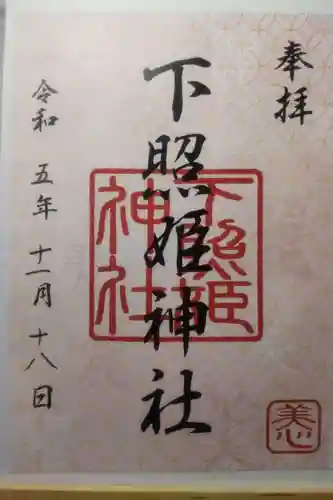 奉拝
下照姫神社
下照姫
神社
令和 五年 十一月 十八日